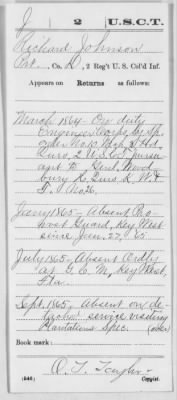 J 2 U.S.C.T.
Richard Johnson
Pvt., Co. D, 2 Reg't U. S. Col'd Inf.
Appears on
Returns as follows:
March 1864 - On duty
Engineer Corps by Sp.
order No. 10
2 U.S.C.
Genl.
No 26.
Jany 1865 - Absent Pro-
vost Guard, Key West
since Jan. 27, 65.
July 1865 - Absent Ordly
at G. C. M., Key West,
Fla.
Sept. 1865, absent on de-
tached service visiting
Plantations Spec. (over)
Book mark:
O. T. Taylor
(546) Copyist.